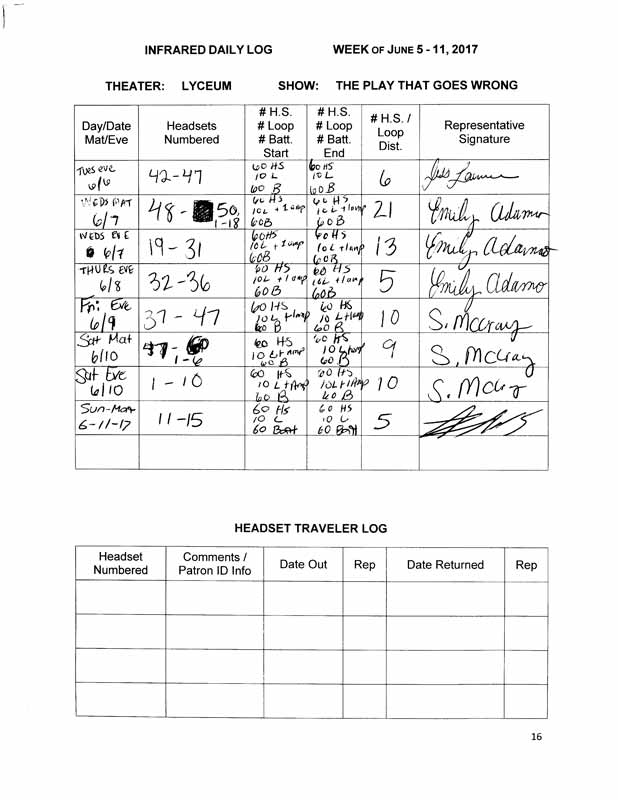 INFRARED DAILY LOG WEEK OF JUNE 5 - 11, 2017
THEATER: LYCEUM SHOW: THE PLAY THAT GOES WRONG
Day/Date Mat/Eve Headsets Numbered # H.S. # Loop # Batt. Start # H.S. # Loop # Batt. End # H.S. / Loop Dist. Representative Signature
Tues eve 6/6 42-47 60 HS 10 L 60 B 60 HS 10 L 60 B 6
WEDS MAT 6/7 48 - 50, 1-18 60 HS 10L + 1 amp 60B 60 HS 10L + 1 amp 60B 21 Emily Adamo
WEDS EVE 6/7 19 - 31 60HS 10L + 1 amp 60B 60HS 10L + 1 amp 60B 13 Emily Adamo
THURS EVE 6/8 32-36 60 HS 10L + 1 amp 60B 60 HS 10L + 1 amp 60B 5 Emily Adamo
Fri Eve 6/9 37 - 47 60 HS 10 L + 1 amp 60 B 60 HS 10 L + 1 amp 60 B 10 S. McCray
Sat Mat 6/10 1-6 60 HS 10 L + amp 60 B 60 HS 10 L + amp 60 B 9 S. McCray
Sat Eve 6/10 1 - 10 60 HS 10 L + 1 Amp 60 B 60 HS 10L + 1 Amp 60 B 10
Sun-Mat 6-11-17 11-15 60 HS 10 L 60 Batt 60 HS 10 L 60 Batt 5
HEADSET TRAVELER LOG
Headset Numbered Comments / Patron ID Info Date Out Rep Date Returned Rep
16